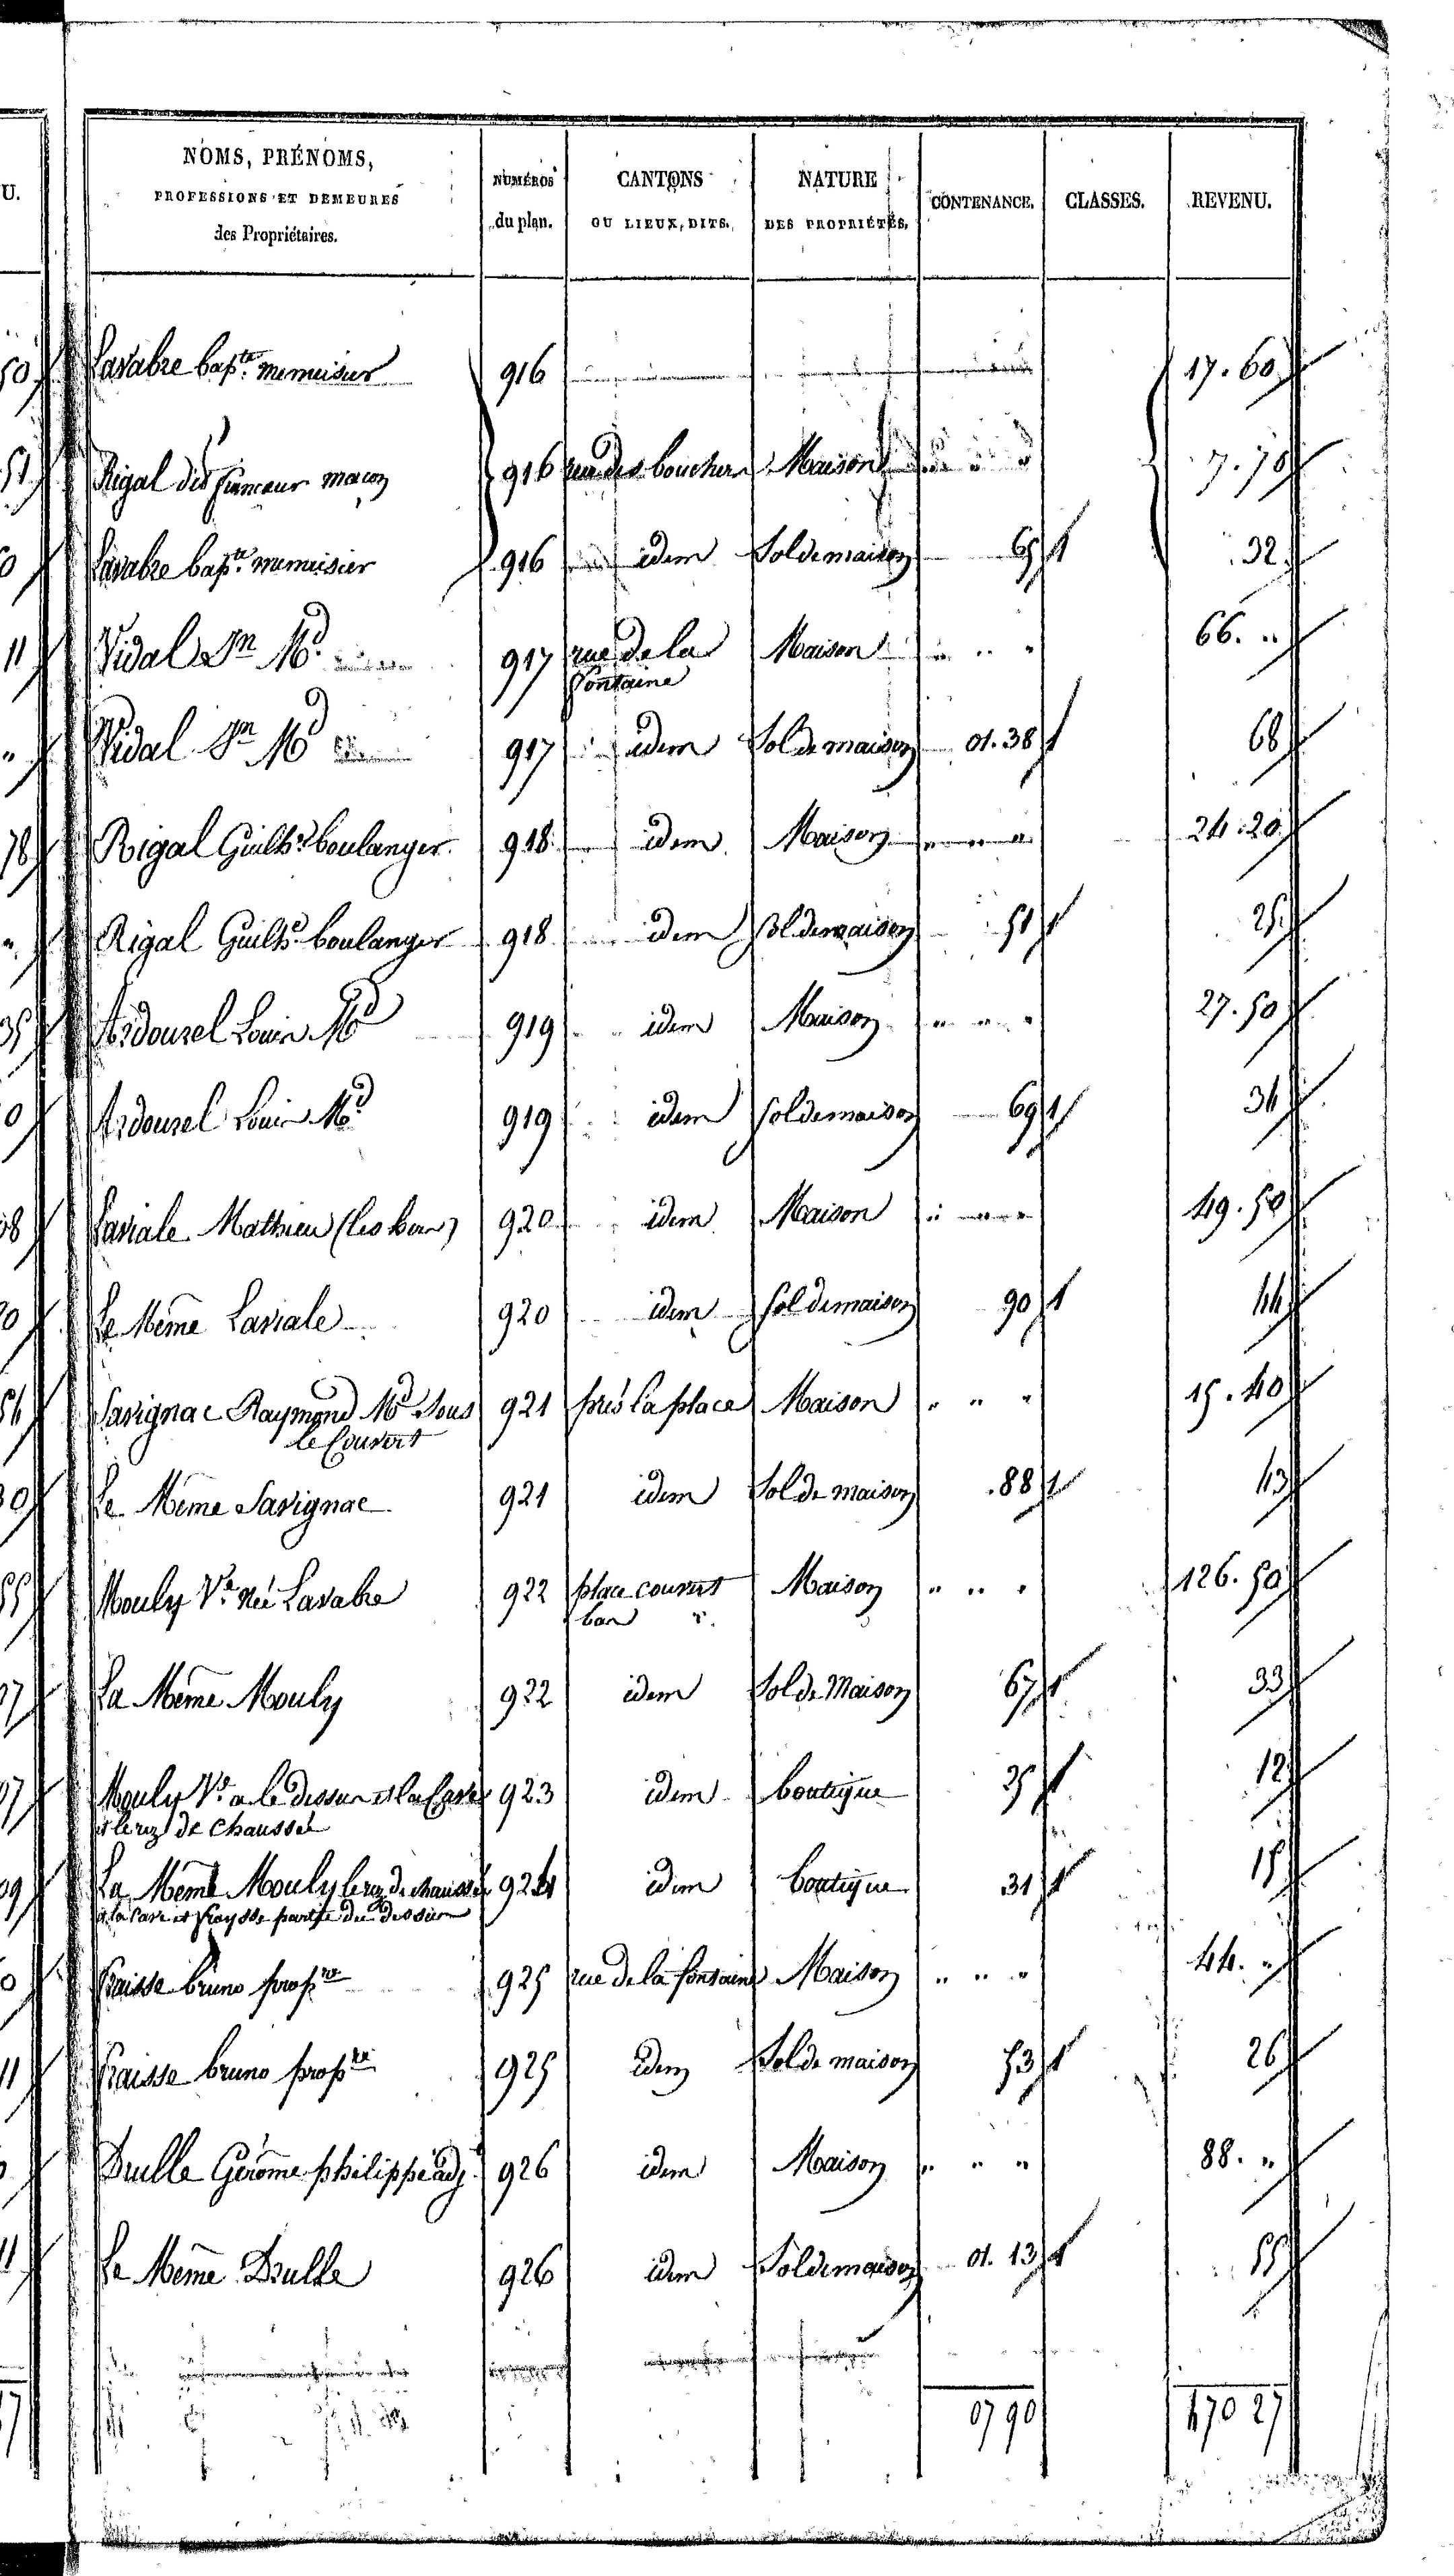 NOMS, PRÉNOMS, PROFESSIONS ET DEMEURES des Propriétaires. NUMÉROS du plan. CANTONS OU LIEUX, DITS. NATURE DES PROPRIÉTÉS. CONTENANCE. CLASSES. REVENU.
U.
Lavabre bap.te menuisier 916 17.60
Rigal dit maçon 916 rue des bouchers Maison 7.70
Lavabre bap.te menuisier 916 idem Sol de maison 65 1 32
Vidal Md 917 rue de la fontaine Maison " " " 66. "
Vidal Md 917 idem Sol de maison 01.38 1 68
Rigal Guilh.e boulanger 918 idem Maison " " " 24.20
Rigal Guilh.e boulanger 918 idem Sol de maison 51 1 25
Ardourel Louis Md 919 idem Maison " " " 27.50
Ardourel Louis Md 919 idem Sol de maison 69 1 34
Laviale Mathieu 920 idem Maison " " " 49.50
Le Même Laviale 920 idem Sol de maison 90 1 44
Savignac Raymond Md Sous le Couvert 921 près la place Maison " " " 15.40
Le Même Savignac 921 idem Sol de maison 88 1 43
Mouly V.e née Lavabre 922 place couvert bas Maison " " " 126.50
La Même Mouly 922 idem Sol de Maison 67 1 33
Mouly V.e a le dessus et la Cave 923 idem boutique 25 1 12
et le rez de chaussée
La Même Mouly le rez de chaussée 924 idem boutique 31 1 15
et la Cave et Fraysse partie du dessus
Fraisse bruno prop.re 925 rue de la fontaine Maison " " " 44. "
Fraisse bruno prop.re 925 idem Sol de maison 53 1 26
Drulle Gérôme philippe adj.t 926 idem Maison " " " 88. "
Le Même Drulle 926 idem Sol de maison 01.13 1 55
07 90 470 27